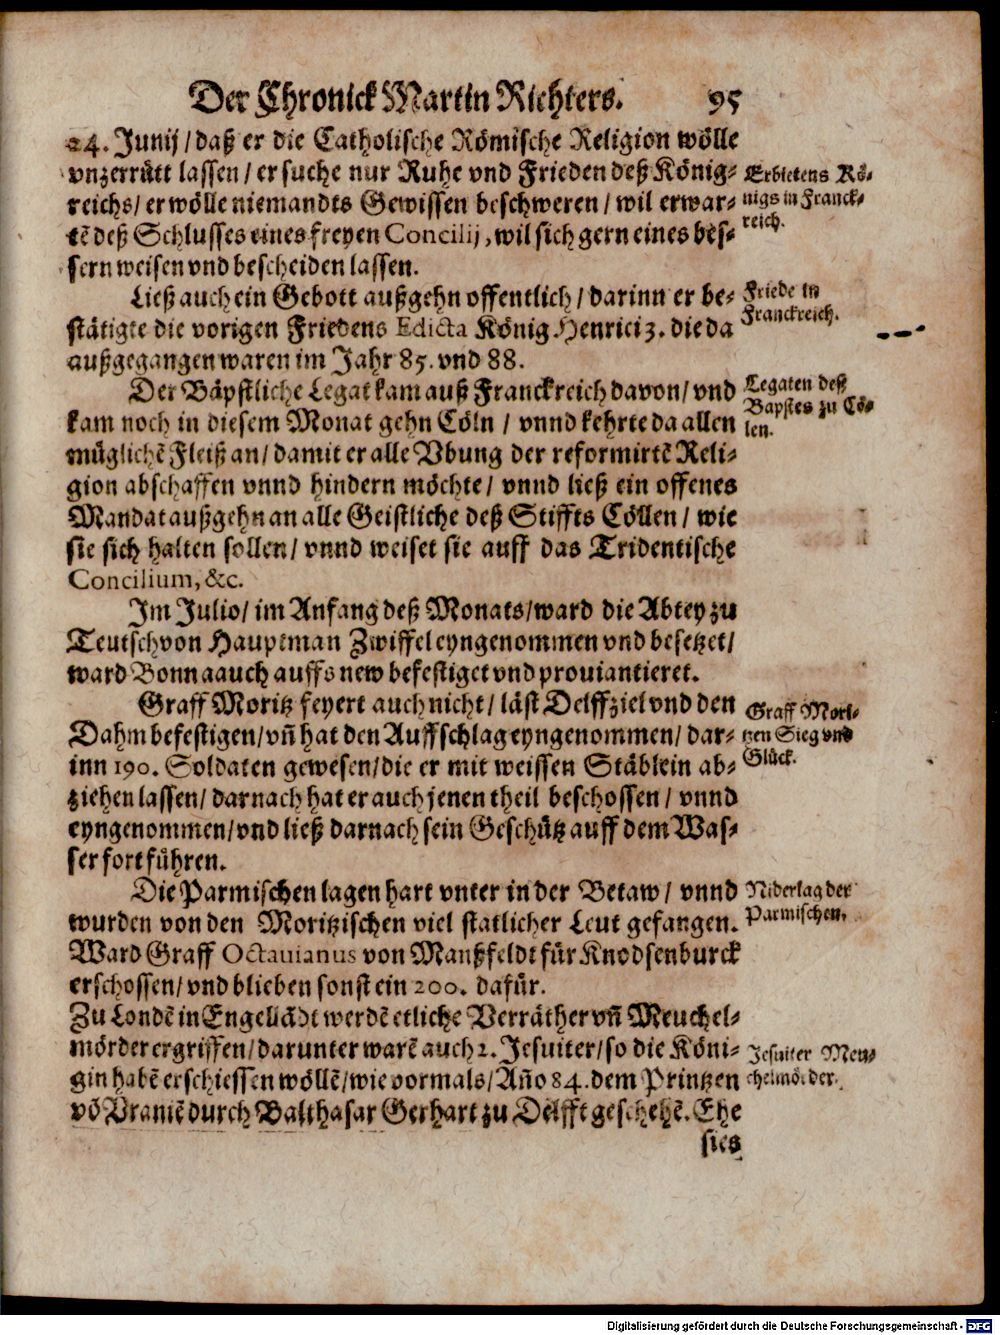 Der Chronick Martin Richters. 95
24. Junij / daß er die Catholische Römische Religion wölle
vnzerrütt lassen / er suche nur Ruhe vnd Frieden deß König-
reichs / er wölle niemandts Gewissen beschweren / wil erwar-
tẽ deß Schlusses eines freyen Concilij, wil sich gern eines bes-
sern weisen vnd bescheiden lassen.
Erbietens Kö-
nigs in Franck-
reich.
Ließ auch ein Gebott außgehn offentlich / darinn er be-
stätigte die vorigen Friedens Edicta König Henrici 3. die da
außgegangen waren im Jahr 85. vnd 88.
Friede in
Franckreich.
Der Bäpstliche Legat kam auß Franckreich davon / vnd
kam noch in diesem Monat gehn Cöln / vnnd kehrte da allen
müglichẽ Fleiß an / damit er alle Vbung der reformirtẽ Reli-
gion abschaffen vnnd hindern möchte / vnnd ließ ein offenes
Mandat außgehn an alle Geistliche deß Stiffts Cöllen / wie
sie sich halten sollen / vnnd weiset sie auff das Tridentische
Concilium, &c.
Legaten deß
Bapstes zu Cö-
len.
Im Julio / im Anfang deß Monats / ward die Abtey zu
Teutsch von Hauptman Zwiffel eyngenommen vnd besetzet /
ward Bonna auch auffs new befestiget vnd prouiantieret.
Graff Moritz feyert auch nicht / läst Delffziel vnd den
Dahm befestigen / vñ hat den Auffschlag eyngenommen / dar-
inn 190. Soldaten gewesen / die er mit weissen Stäblein ab-
ziehen lassen / darnach hat er auch jenen theil beschossen / vnnd
eyngenommen / vnd ließ darnach sein Geschütz auff dem Was-
ser fort führen.
Graff Mori-
tzen Sieg vnd
Glück.
Die Parmischen lagen hart vnter in der Betaw / vnnd
wurden von den Moritzischen viel statlicher Leut gefangen.
Ward Graff Octauianus von Manßfeldt für Knodsenburck
erschossen / vnd blieben sonst ein 200. dafür.
Niderlag der
Parmischen.
Zu Londẽ in Engellãdt werdẽ etliche Verräther vñ Meuchel-
mörder ergriffen / darunter warẽ auch 2. Jesuiter / so die Köni-
gin habẽ erschiessen wöllẽ / wie vormals / Año 84. dem Printzen
võ Vraniẽ durch Balthasar Gerhart zu Delfft geschehẽ. Ehe
Jesuiter Meu-
chelmörder.
sies
Digitalisierung gefördert durch die Deutsche Forschungsgemeinschaft - DFG